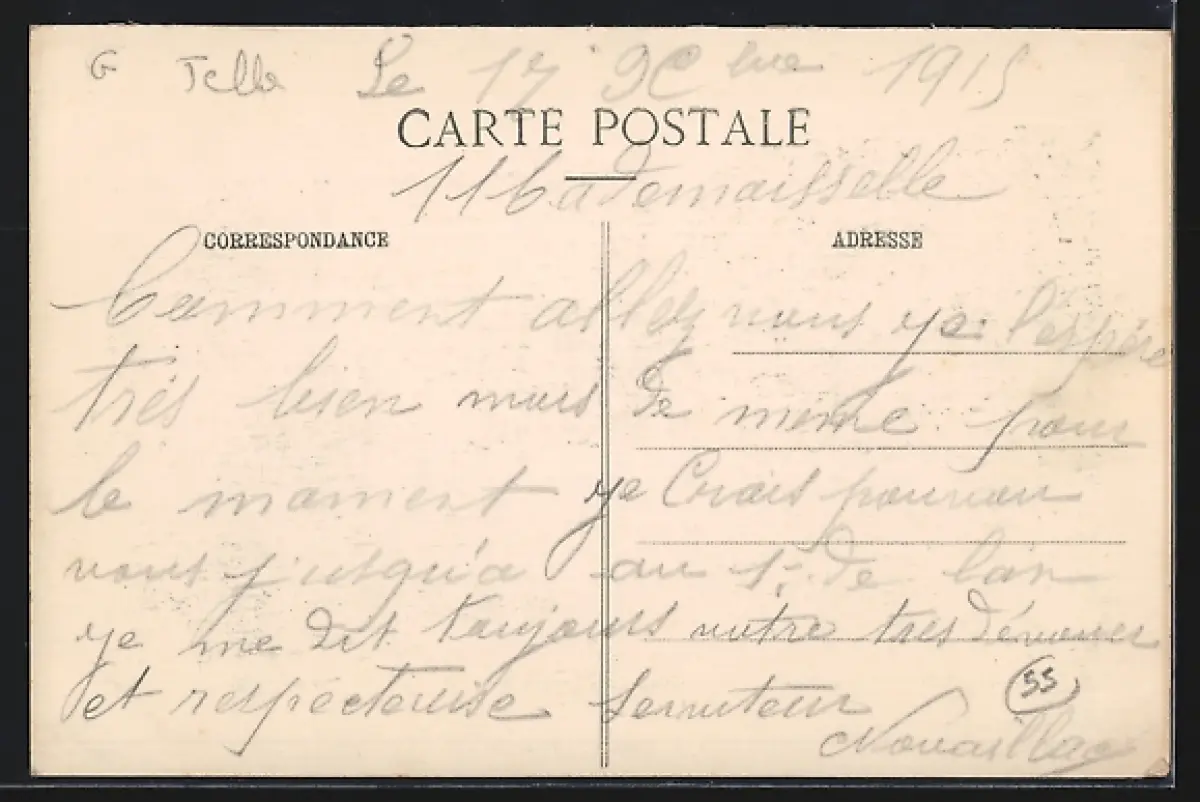 G Jelle Le 17 9C bre 1915
CARTE POSTALE
Mademaisselle
CORRESPONDANCE
ADRESSE
Camment allez vous ye l'espère
tres bien mais de meme pour
le mament ye Crais pour
vous jusqu'a au 1r de l'an
ye me dit toujours votre tres dévouer
et respectouise serviteur
55
Novaillac